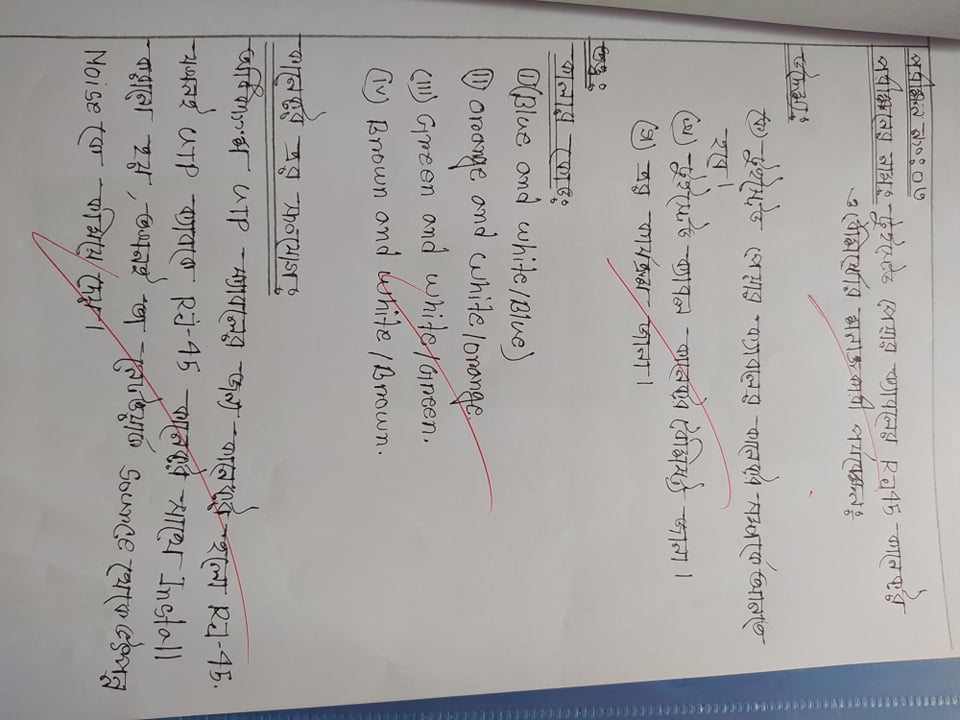 পরীক্ষন নং: ০৭
পরীক্ষনের নামঃ টুইস্টেড পেয়ার ক্যাবলের RJ45 কানেক্টর
ও টার্মিনেটর সনাক্তকরণ পর্যবেক্ষন:
উদ্দেশ্য:
(ক) টুইস্টেড পেয়ার ক্যাবলের কানেক্টর সম্পর্কে জানতে
হবে।
(খ) টুইস্টেড ক্যাবল কানেক্টর জানা।
(গ) এর কার্যক্রম জানা।
তত্ত্ব:
কালার কোড:
(i) (Blue and white/Blue)
(ii) Orange and white/orange.
(iii) Green and white/Green.
(iv) Brown and white/Brown.
কানেক্টর এর ফাংশন:
UTP ক্যাবলের জন্য কানেক্টর হলো RJ-45.
যখনই UTP ক্যাবলে RJ-45 কানেক্টর সাথে Install
করানো হয়, তখনই তা Source থেকে উৎপন্ন
Noise কে কমিয়ে দেয়।